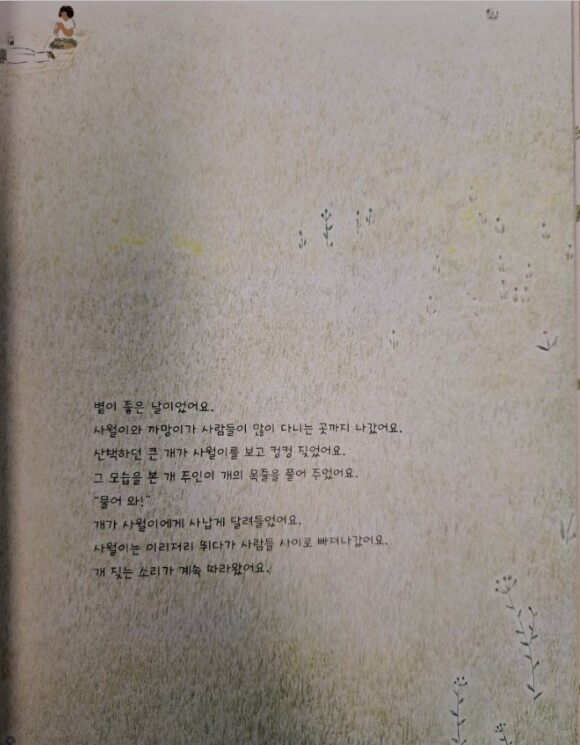 볕이 좋은 날이었어요.
사월이와 까망이가 사람들이 많이 다니는 곳까지 나갔어요.
산책하던 큰 개가 사월이를 보고 컹컹 짖었어요.
그 모습을 본 개 주인이 개의 목줄을 풀어 주었어요.
“물어 와!”
개가 사월이에게 사납게 달려들었어요.
사월이는 이리저리 뛰다가 사람들 사이로 빠져나갔어요.
개 짖는 소리가 계속 따라왔어요.